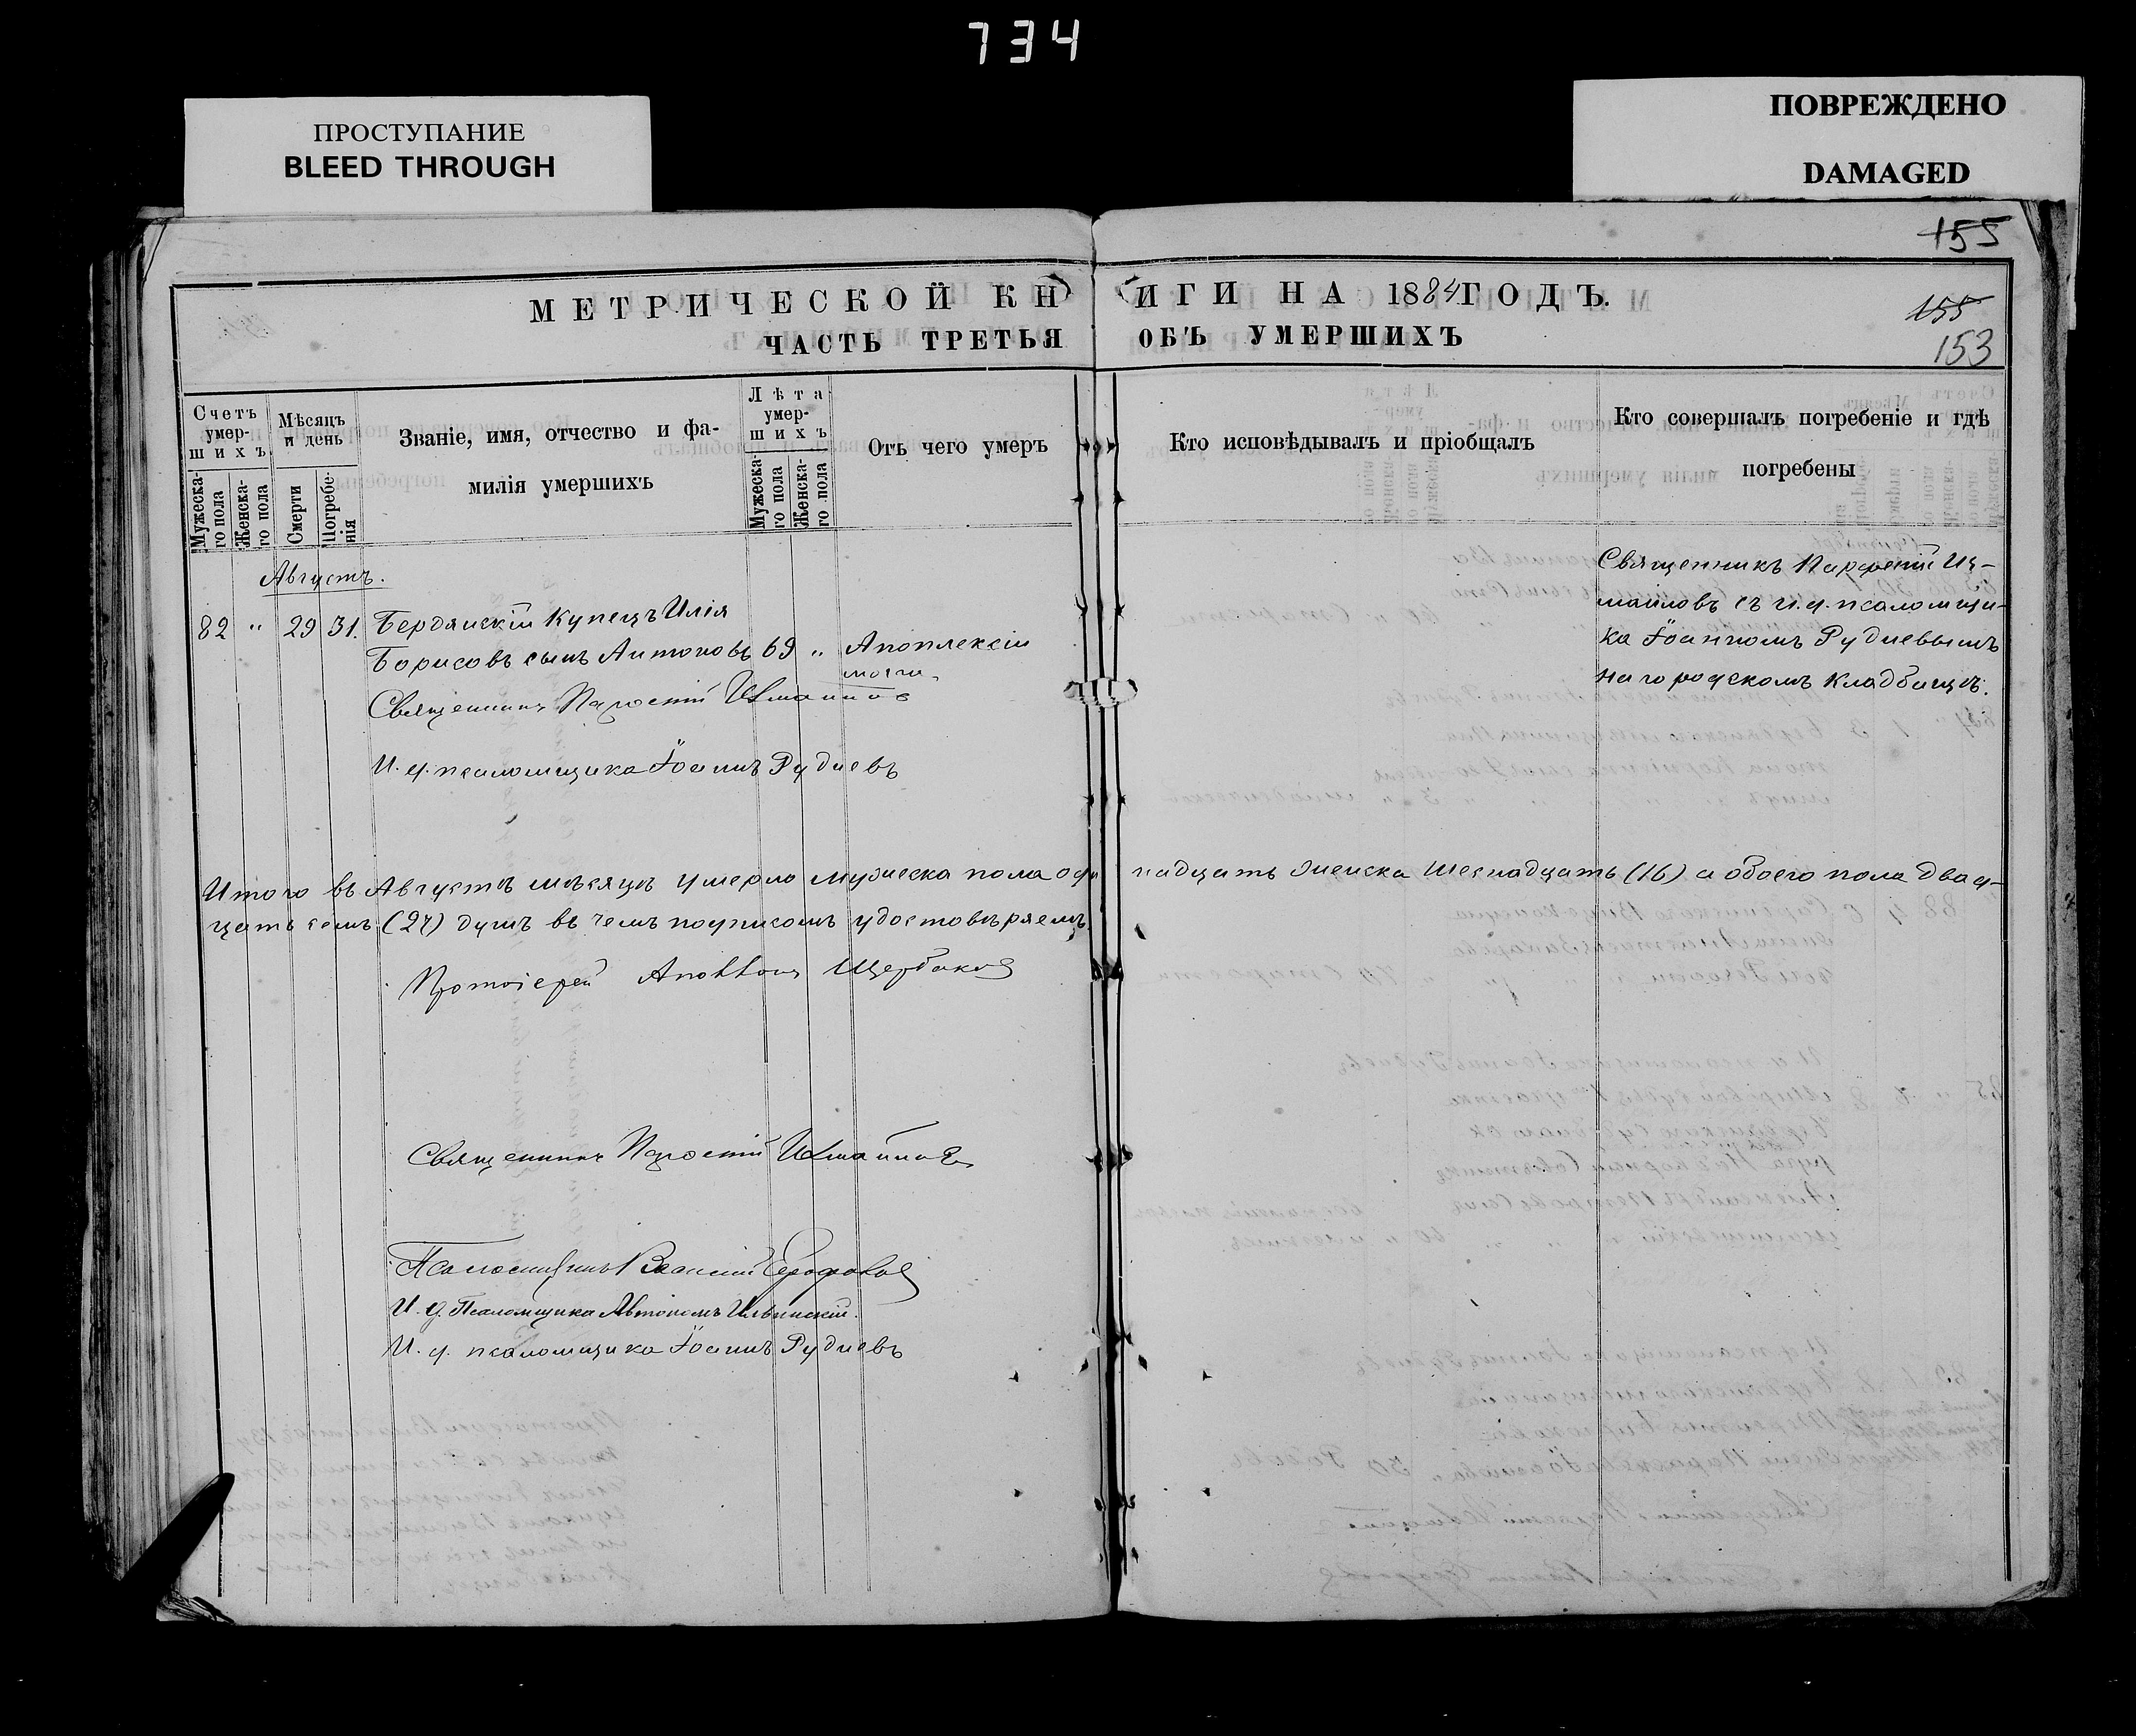 734
ПРОСТУПАНИЕ
BLEED THROUGH
ПОВРЕЖДЕНО
DAMAGED
155
МЕТРИЧЕСКОЙ КНИГИ НА 1884 ГОДЪ.
155
ЧАСТЬ ТРЕТЬЯ ОБЪ УМЕРШИХЪ
153
Счетъ умер-шихъ
Мужеска-го пола
Женска-го пола
Мѣсяцъ и день
Смерти
Погребе-нія
Званіе, имя, отчество и фа-
милія умершихъ
Лѣта умер-шихъ
Мужеска-го пола
Женска-го пола
Отъ чего умеръ
Кто исповѣдывалъ и пріобщалъ
Кто совершалъ погребеніе и гдѣ
погребены
Августъ.
82 " 29 31. Бердянскій Купецъ Илія
Борисовъ сынъ Антоновъ 69 " Апоплексіи
мозга
Священникъ Парѳеній Измаиловъ
И. д. псаломщика Іоаннъ Рудневъ
Священникъ Парѳеній Из-
маиловъ съ и. д. псаломщи-
ка Іоанномъ Рудневымъ
на городскомъ кладбищѣ.
Итого въ Августѣ мѣсяцѣ умерло мужеска пола оди надцать женска шеснадцать (16) а обоего пола двад-
цать семь (27) душъ въ чемъ подписомъ удостовѣряемъ.
Протоіерей Аполлонъ Щербаковъ
Священникъ Парѳеній Измаиловъ
Псаломщикъ Василій
И. д. Псаломщика Автономъ Ильинскій.
И. д. псаломщика Іоаннъ Рудневъ